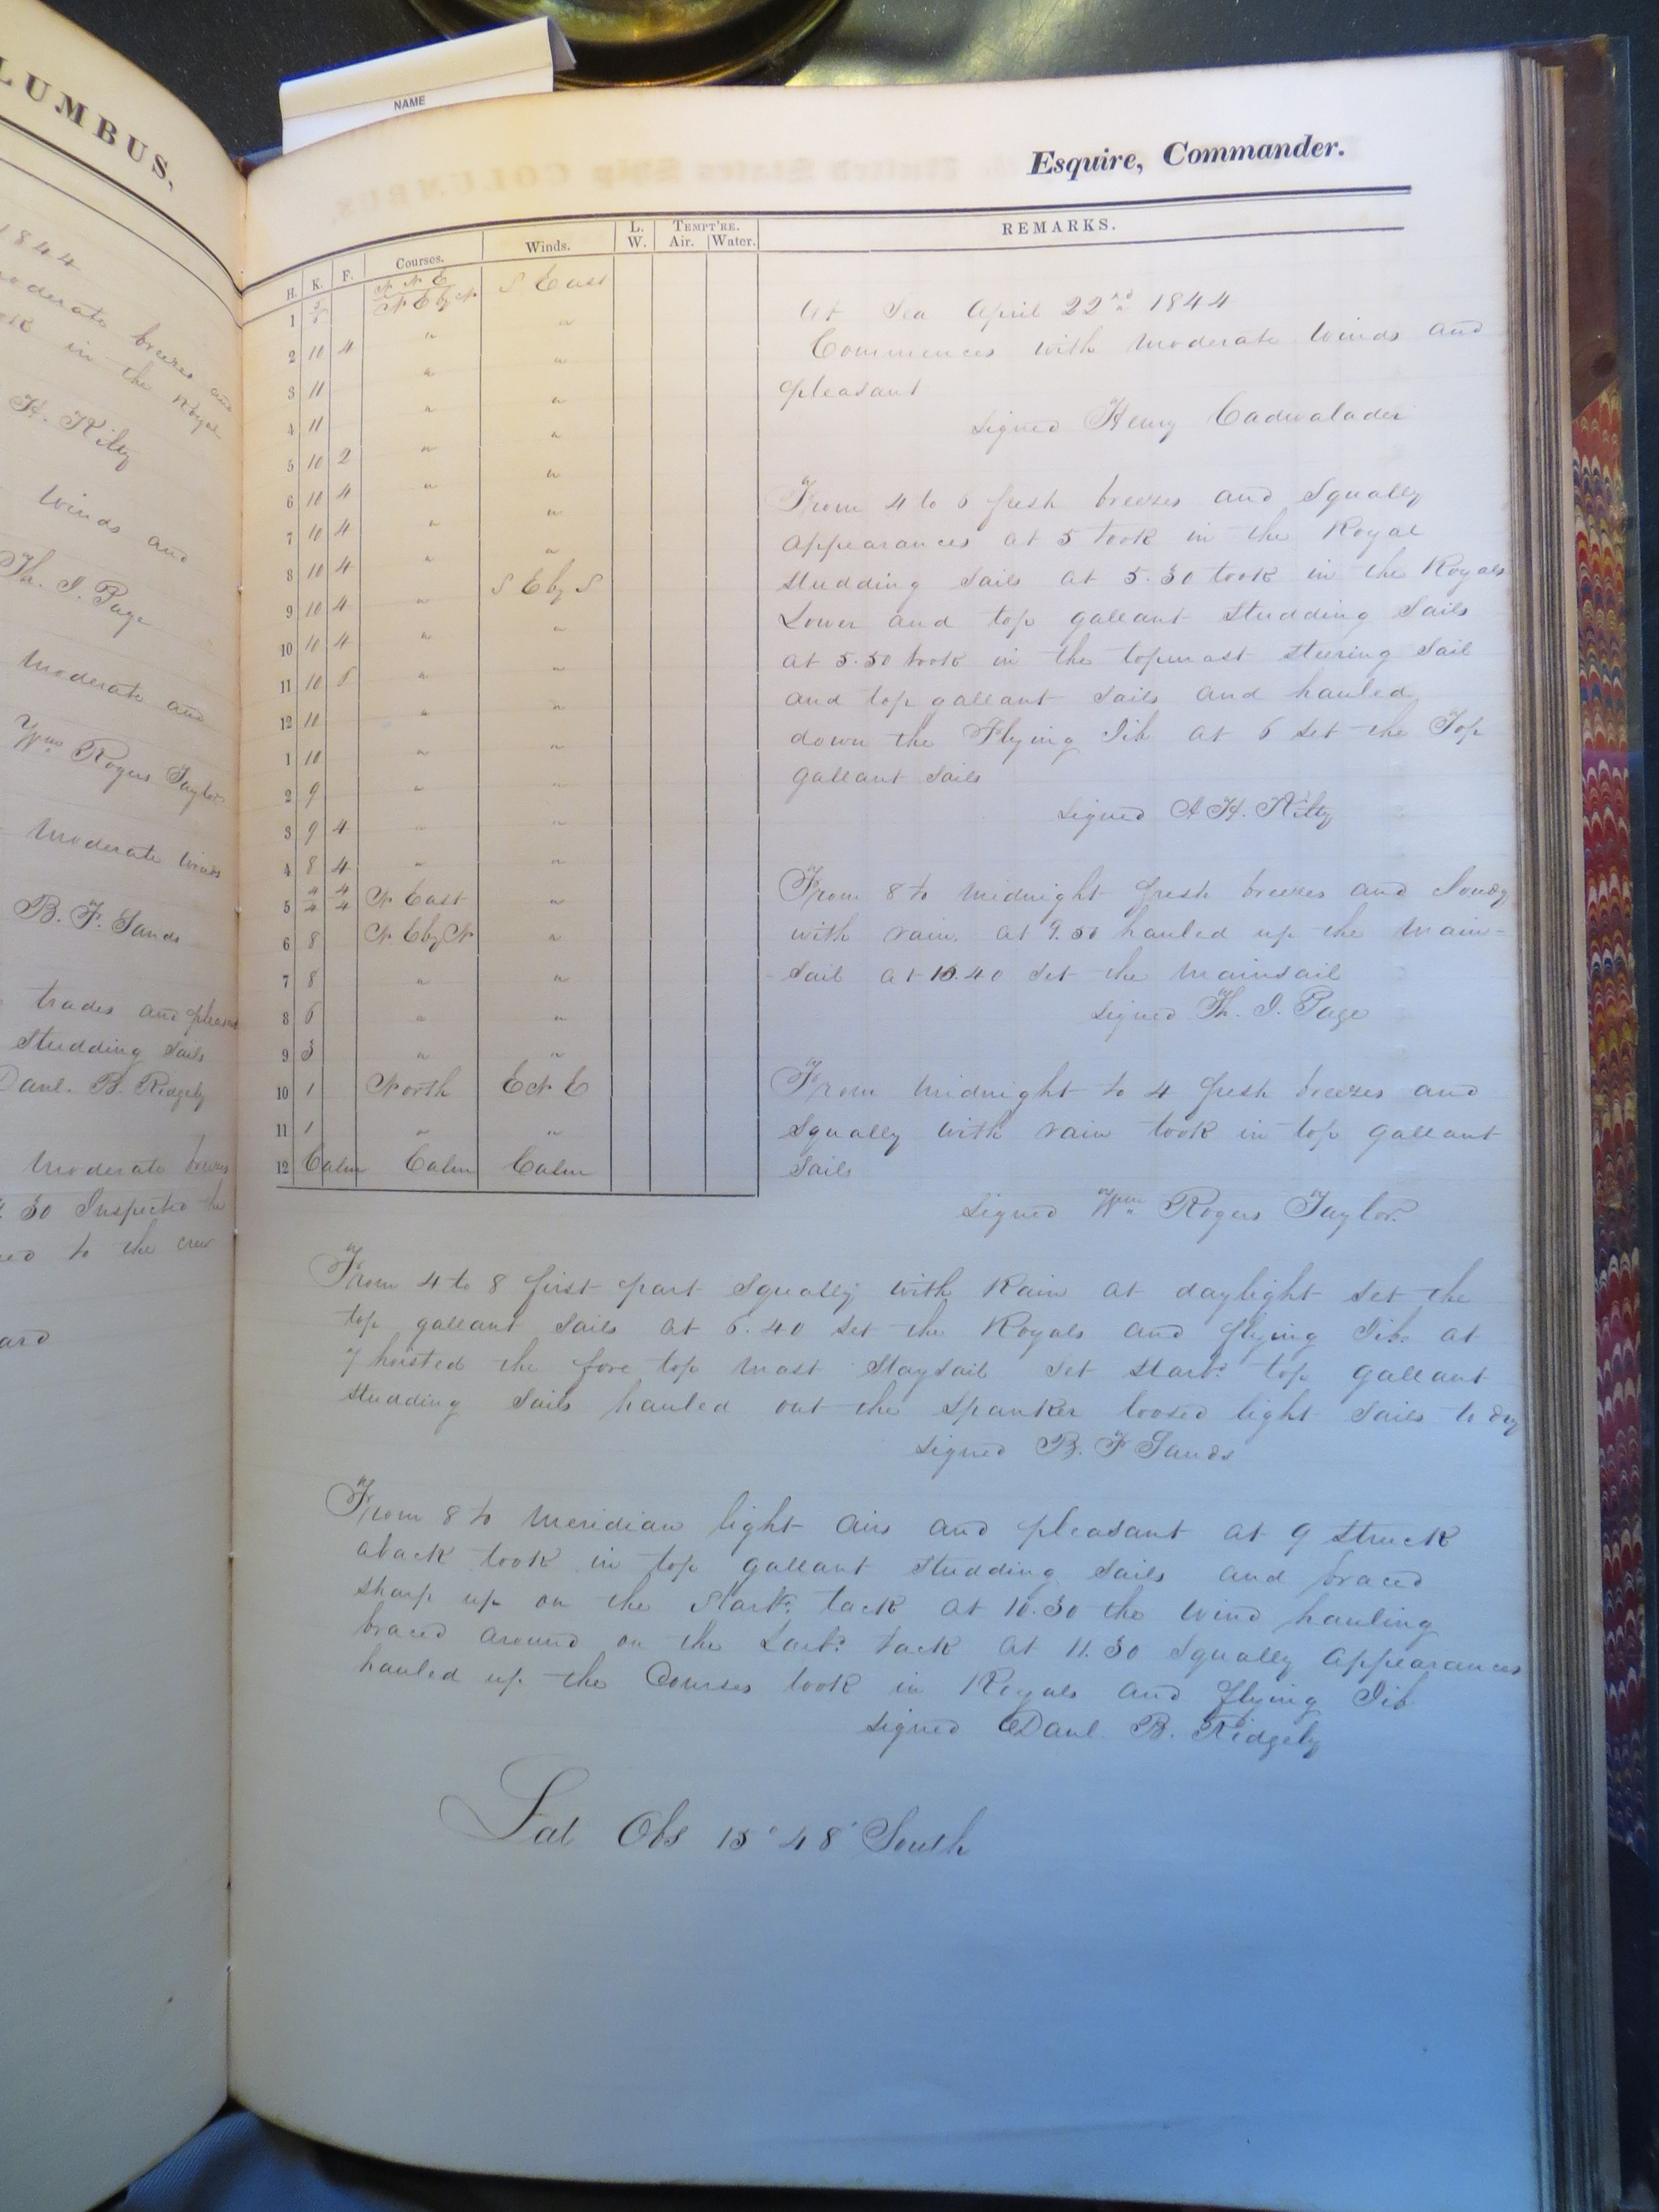 LUMBUS,
1844
moderate breezes and
in the Royal
H. Kilty
Winds and
Th. J. Page
Moderate and
Wm Rogers Taylor
Moderate Winds
B. F. Sands
trades and pleasant
Studding Sails
Danl. B. Ridgely
Moderate breezes
30 Inspected the
to the crew
NAME
Esquire, Commander.
H. K. F. Courses. Winds. L. W. TEMPT'RE. Air. Water. REMARKS.
1 5/5 N N E / N E by N S East
2 10 4 " "
3 11 " "
4 11 " "
5 10 2 " "
6 10 4 " "
7 10 4 " "
8 10 4 " "
9 10 4 " S E by S
10 10 4 " "
11 10 6 " "
12 10 " "
1 10 " "
2 9 " "
3 9 4 " "
4 8 4 " "
5 4/4 4/4 N East "
6 8 N E by N "
7 8 " "
8 6 " "
9 3 " "
10 1 North E N E
11 1 " "
12 Calm Calm Calm
At Sea April 22nd 1844
Commences with moderate Winds and
pleasant
Signed Henry Cadwalader
From 4 to 6 fresh breezes and Squally
appearances at 5 took in the Royal
studding Sails at 5.30 took in the Royals
Lower and top gallant Studding Sails
at 5.50 took in the topmast steering Sail
and top gallant Sails and hauled
down the Flying Jib at 6 set the Top
gallant Sails
Signed A H. Kilty
From 8 to Midnight fresh breezes and Cloudy
with rain. at 9.50 hauled up the Main-
-sail at 10.40 set the Mainsail
Signed Th. J. Page
From Midnight to 4 fresh breezes and
Squally with rain took in top gallant
Sails
Signed Wm Rogers Taylor.
From 4 to 8 first part Squally with Rain at daylight set the
top gallant Sails at 6.40 set the Royals and flying Jib. at
7 hoisted the fore top Mast Staysail Set Starb. top gallant
studding Sails hauled out the Spanker loosed light Sails to dry
Signed B. F Sands
From 8 to Meridian light airs and pleasant at 9 struck
aback took in top gallant Studding Sails and braced
sharp up on the Starb. tack at 10.30 the Wind hauling
braced around on the Larb. tack at 11.30 Squally Appearances
hauled up the Courses took in Royals and flying Jib
Signed Danl. B. Ridgely
Lat Obs 15° 48' South